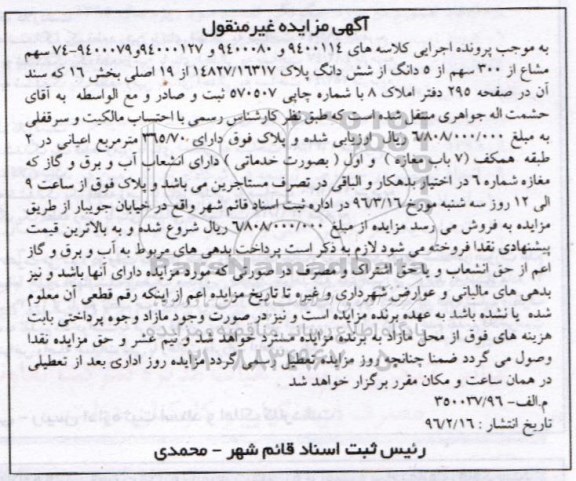 آگهی مزایده غیرمنقول
به موجب پرونده اجرایی کلاسه های ۹۴۰۰۱۱۴ و ۹۴۰۰۰۸۰ و ۹۴۰۰۰۱۲۷و۹۴۰۰۰۷۹-۷۴سهم
مشاع از ۳۰۰ سهم از ۵ دانگ از شش دانگ پلاک ۱۴۸۲۷/۱۶۳۱۷ از ۱۹ اصلی بخش ۱۶ که سند
آن در صفحه ۲۹۵ دفتر املاک ۸ با شماره چاپی ۵۷۰۵۰۷ ثبت و صادر و مع الواسطه به آقای
حشمت اله جواهری منتقل شده است که طبق نظر کارشناس رسمی با احتساب مالکیت و سرقفلی
به مبلغ ۶/۸۰۸/۰۰۰/۰۰۰ ریال ارزیابی شده و پلاک فوق دارای ۲۶۵/۷۰ مترمربع اعیانی در ۲
طبقه همکف (۷ باب مغازه ) و اول ( بصورت خدماتی ) دارای انشعاب آب و برق و گاز که
مغازه شماره ۶ در اختیار بدهکار و الباقی در تصرف مستاجرین می باشد و پلاک فوق از ساعت ۹
الی ۱۲ روز سه شنبه مورخ ۹۶/۳/۱۶ در اداره ثبت اسناد قائم شهر واقع در خیابان جویبار از طریق
مزایده به فروش می رسد مزایده از مبلغ ۶/۸۰۸/۰۰۰/۰۰۰ ریال شروع شده و به بالاترین قیمت
پیشنهادی نقدا فروخته می شود لازم به ذکر است پرداخت بدهی های مربوط به آب و برق و گاز
اعم از حق انشعاب و یا حق اشتراک و مصرف در صورتی که مورد مزایده دارای آنها باشد و نیز
بدهی های مالیاتی و عوارض شهرداری و غیره تا تاریخ مزایده اعم از اینکه رقم قطعی آن معلوم
شده یا نشده باشد به عهده برنده مزایده است و نیز در صورت وجود مازاد وجوه پرداختی بابت
هزینه های فوق از محل مازاد به برنده مزایده مسترد خواهد شد و نیم عشر و حق مزایده نقدا
وصول می گردد ضمنا چنانچه روز مزایده تعطیل رسمی گردد مزایده روز اداری بعد از تعطیلی
در همان ساعت و مکان مقرر برگزار خواهد شد
م.الف- ۳۵۰۰۳۷/۹۶
تاریخ انتشار : ۹۶/۲/۱۶
رئیس ثبت اسناد قائم شهر - محمدی